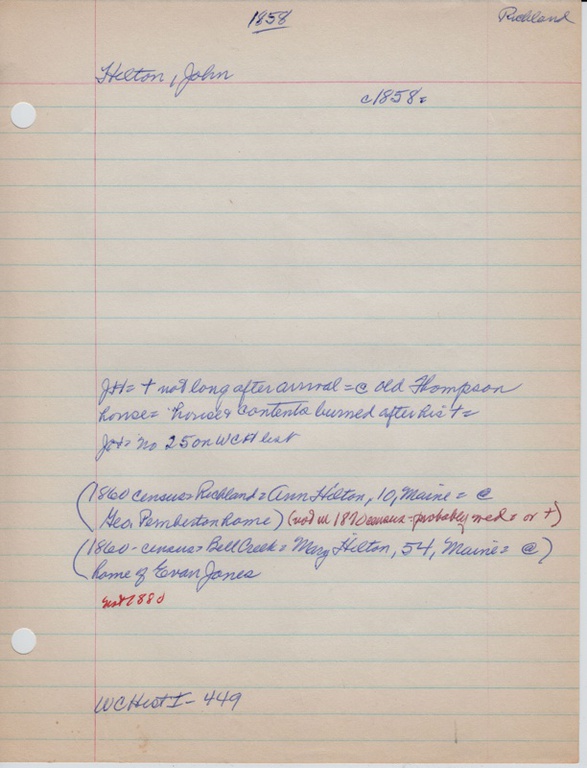 1858
Richland
Hilton, John
c1858=
JH= + not long after arrival = @ old Thompson
house= house & contents burned after his + =
JH= no 25 on WCH list
(1860 census= Richland= Ann Hilton, 10, Maine = @
Geo. Pemberton home) (not in 1870 census - probably med= or +)
(1860 - census= Bell Creek= Mary Hilton, 54, Maine= @)
home of Evan Jones
not 1880
WCHist I - 449